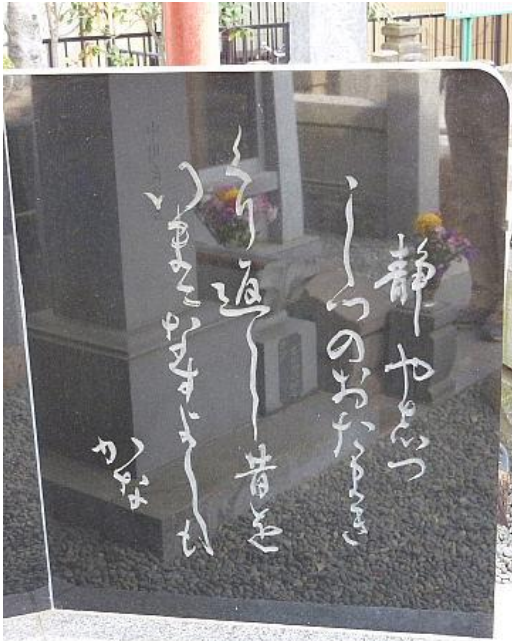 静やしつ
しつのおたまき
くり返し昔を
いまになすよしも
かな